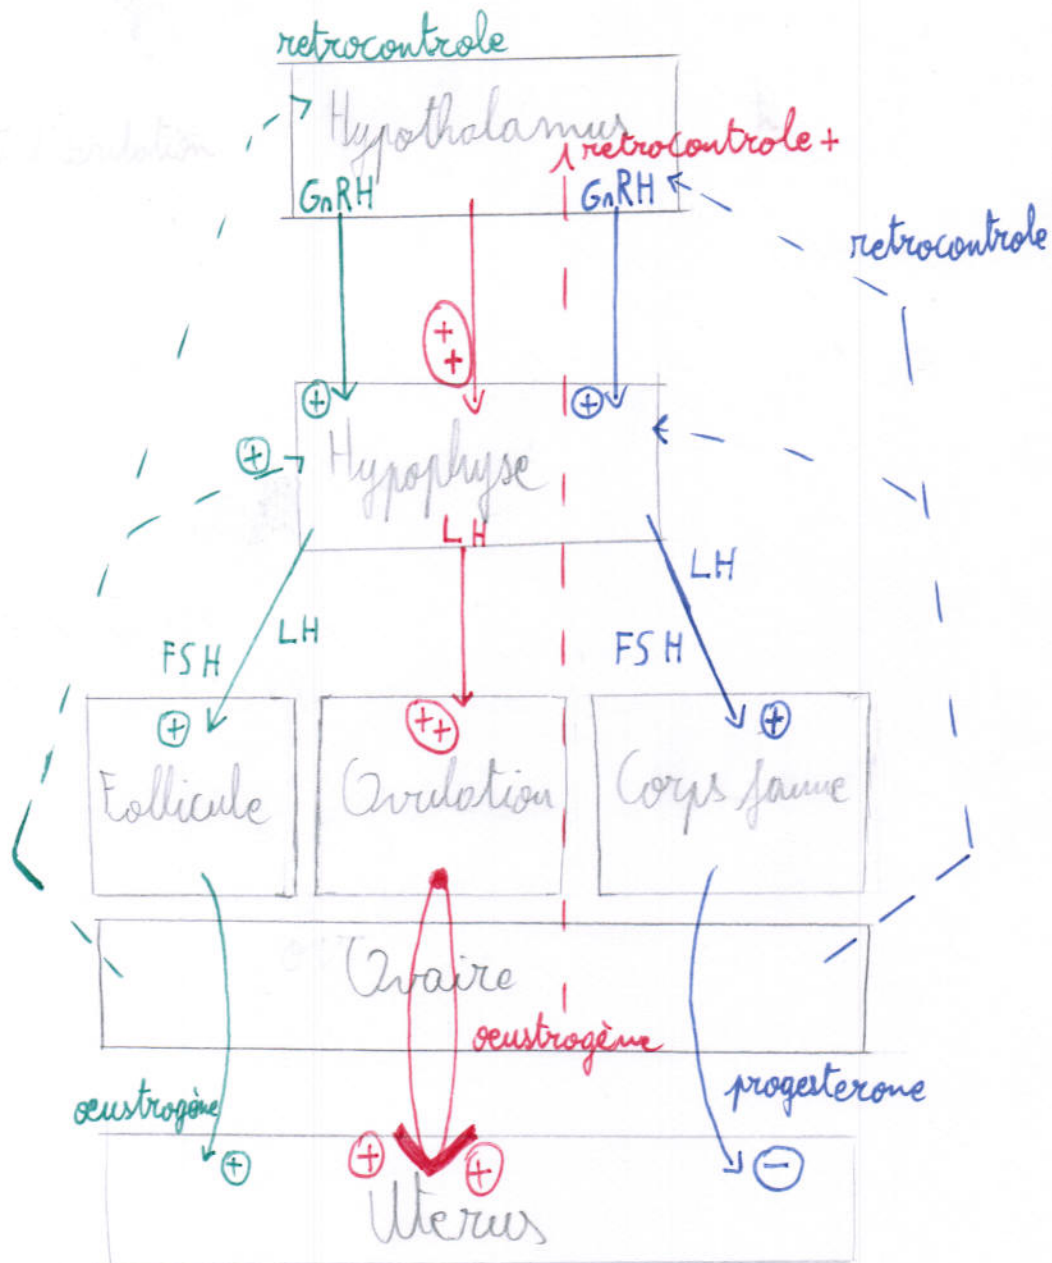 retrocontrole
Hypothalamus
retrocontrole +
GnRH GnRH
retrocontrole
+
+
+ +
+
Hypophyse
LH
LH
LH
FSH
FSH
+ ++ +
Follicule Ovulation Corps jaune
Ovaire
oeustrogène
oeustrogène progesterone
+ + + −
Uterus